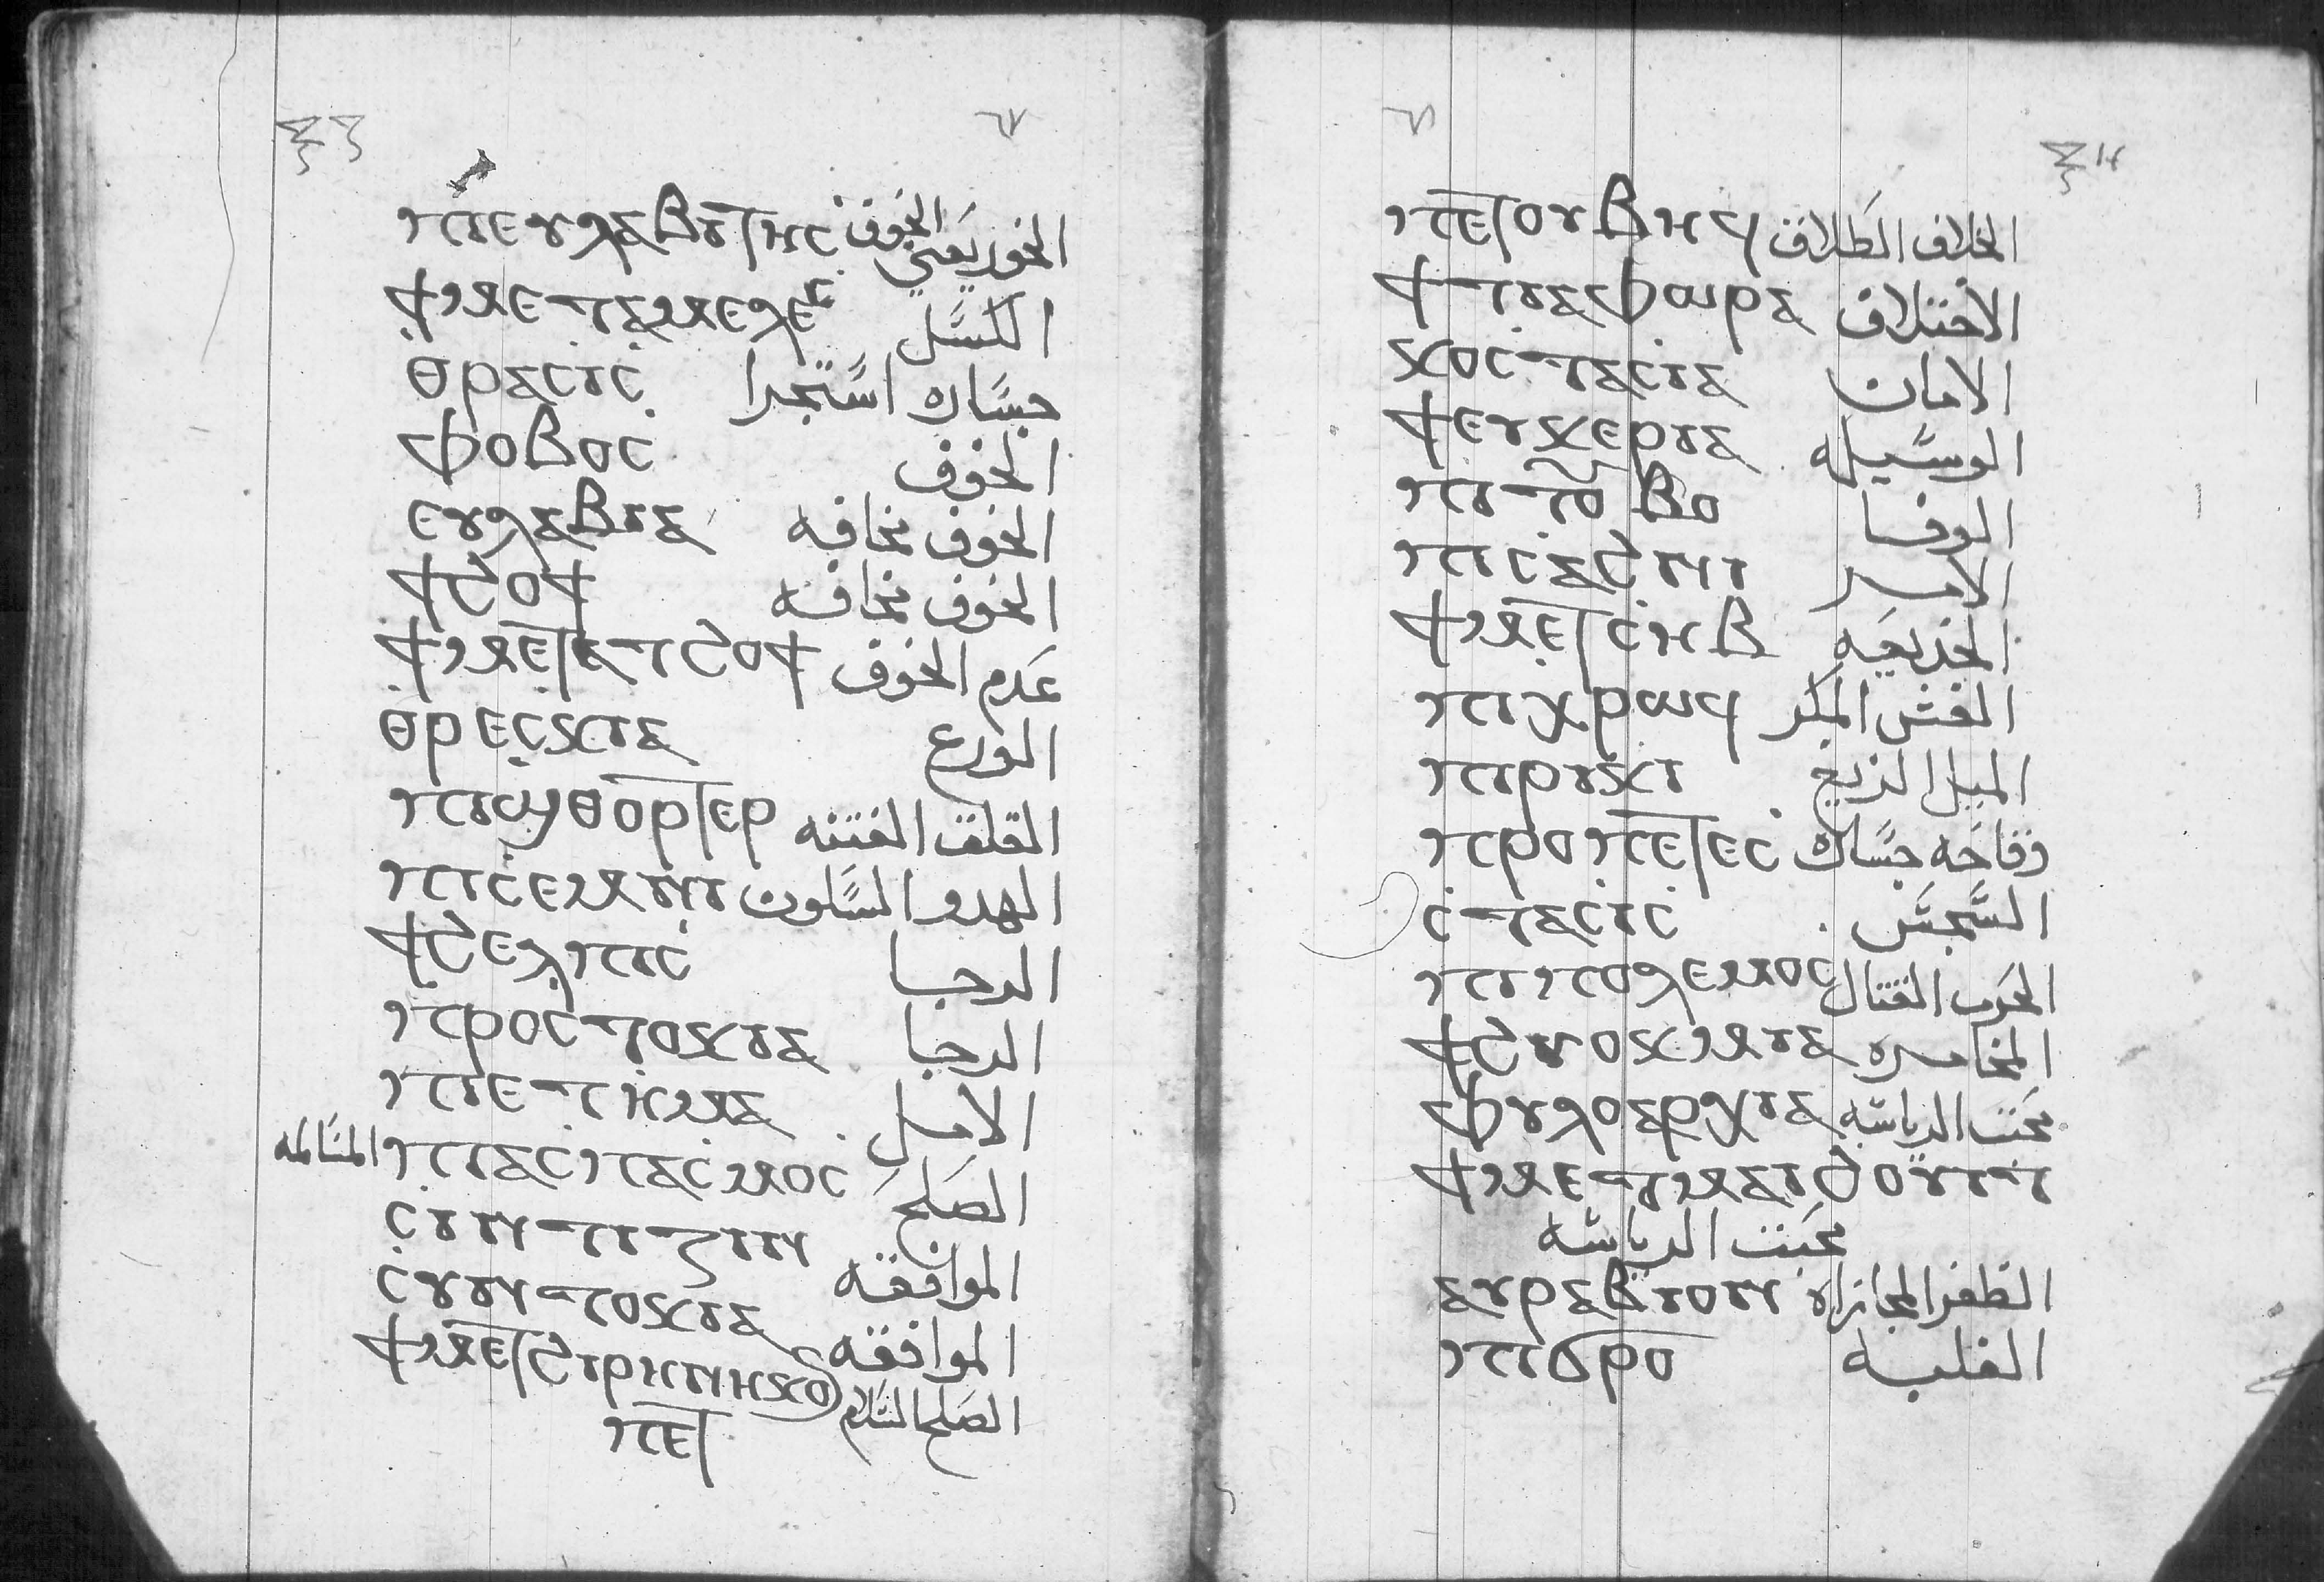 ⲝⲍ ٦٧
ⲡⲓⲉⲩⲗⲁⲃⲓϯⲏⲥ الخوف يعني الخوف
ϯⲙⲉⲧⲁⲙⲉⲗⲉⲥ الكسل
ⲑⲣⲁⲥⲓⲥ جساره استجرا
ⲫⲟⲃⲟⲥ الخوف
ⲉⲩⲗⲁⲃⲓⲁ الخوف مخافه
ϯϩⲟϯ الخوف مخافه
ϯⲙⲉⲧⲁⲧϩⲟϯ عدم الخوف
ⲑⲣⲉⲥⲕⲓⲁ الورع
ⲡⲓϣⲑⲟⲣⲧⲉⲣ القلق الفتنه
ⲡⲓⲥⲉⲙⲛⲓ الهدو السكون
ϯϩⲉⲗⲡⲓⲥ الرجا
ⲡⲣⲟⲥⲧⲟⲕⲓⲁ الرجا
ⲡⲓⲉⲧⲏⲙⲁ الامل
ⲡⲓⲁⲥⲡⲁⲥⲙⲟⲥ الصلح المسالمه
ⲥⲓⲛⲧⲓⲍⲓⲛ الموافقه
ⲥⲩⲛⲧⲟⲕⲓⲁ الموافقه
ϯⲙⲉⲧϩⲓⲣⲏⲛⲏⲕⲟⲥ الصلح السلام
ⲝⲏ ٦٨
ⲡⲉⲧⲟⲩⲃⲏϥ الخلاف الطلاق
ϯⲧⲓⲁⲫⲱⲣⲁ الاختلاف
ⲕⲟⲥⲧⲁⲥⲓⲁ الامان
ϯⲉⲩⲕⲉⲣⲓⲁ الوسيله
ⲡⲓⲧⲟⲩⲃⲟ الوفا
ⲡⲓⲥⲁϩⲛⲓ الامر
ϯⲙⲉⲧⲥⲏⲃ الخديعه
ⲡⲓⲭⲣⲱϥ الغش المكر
ⲡⲓⲣⲓⲕⲓ الميل الزيغ
ⲡⲣⲟⲡⲉⲧⲉⲥ وقاحه جساره
ⲥⲧⲁⲥⲓⲥ السجس
ⲡⲓⲡⲟⲗⲉⲙⲟⲥ الحرب القتال
ϯϩⲩⲟⲕⲙⲓⲁ المخاصره
ⲫⲩⲗⲟⲁⲣⲭⲓⲁ محبت الرياسه
ϯⲙⲉⲧⲙⲁⲓϩⲟⲩⲓⲧ
محبت الرياسه
ⲁⲩⲣⲁⲃⲓⲟⲛ الظفر المجازاه
ⲡⲓϭⲣⲟ الغلبه